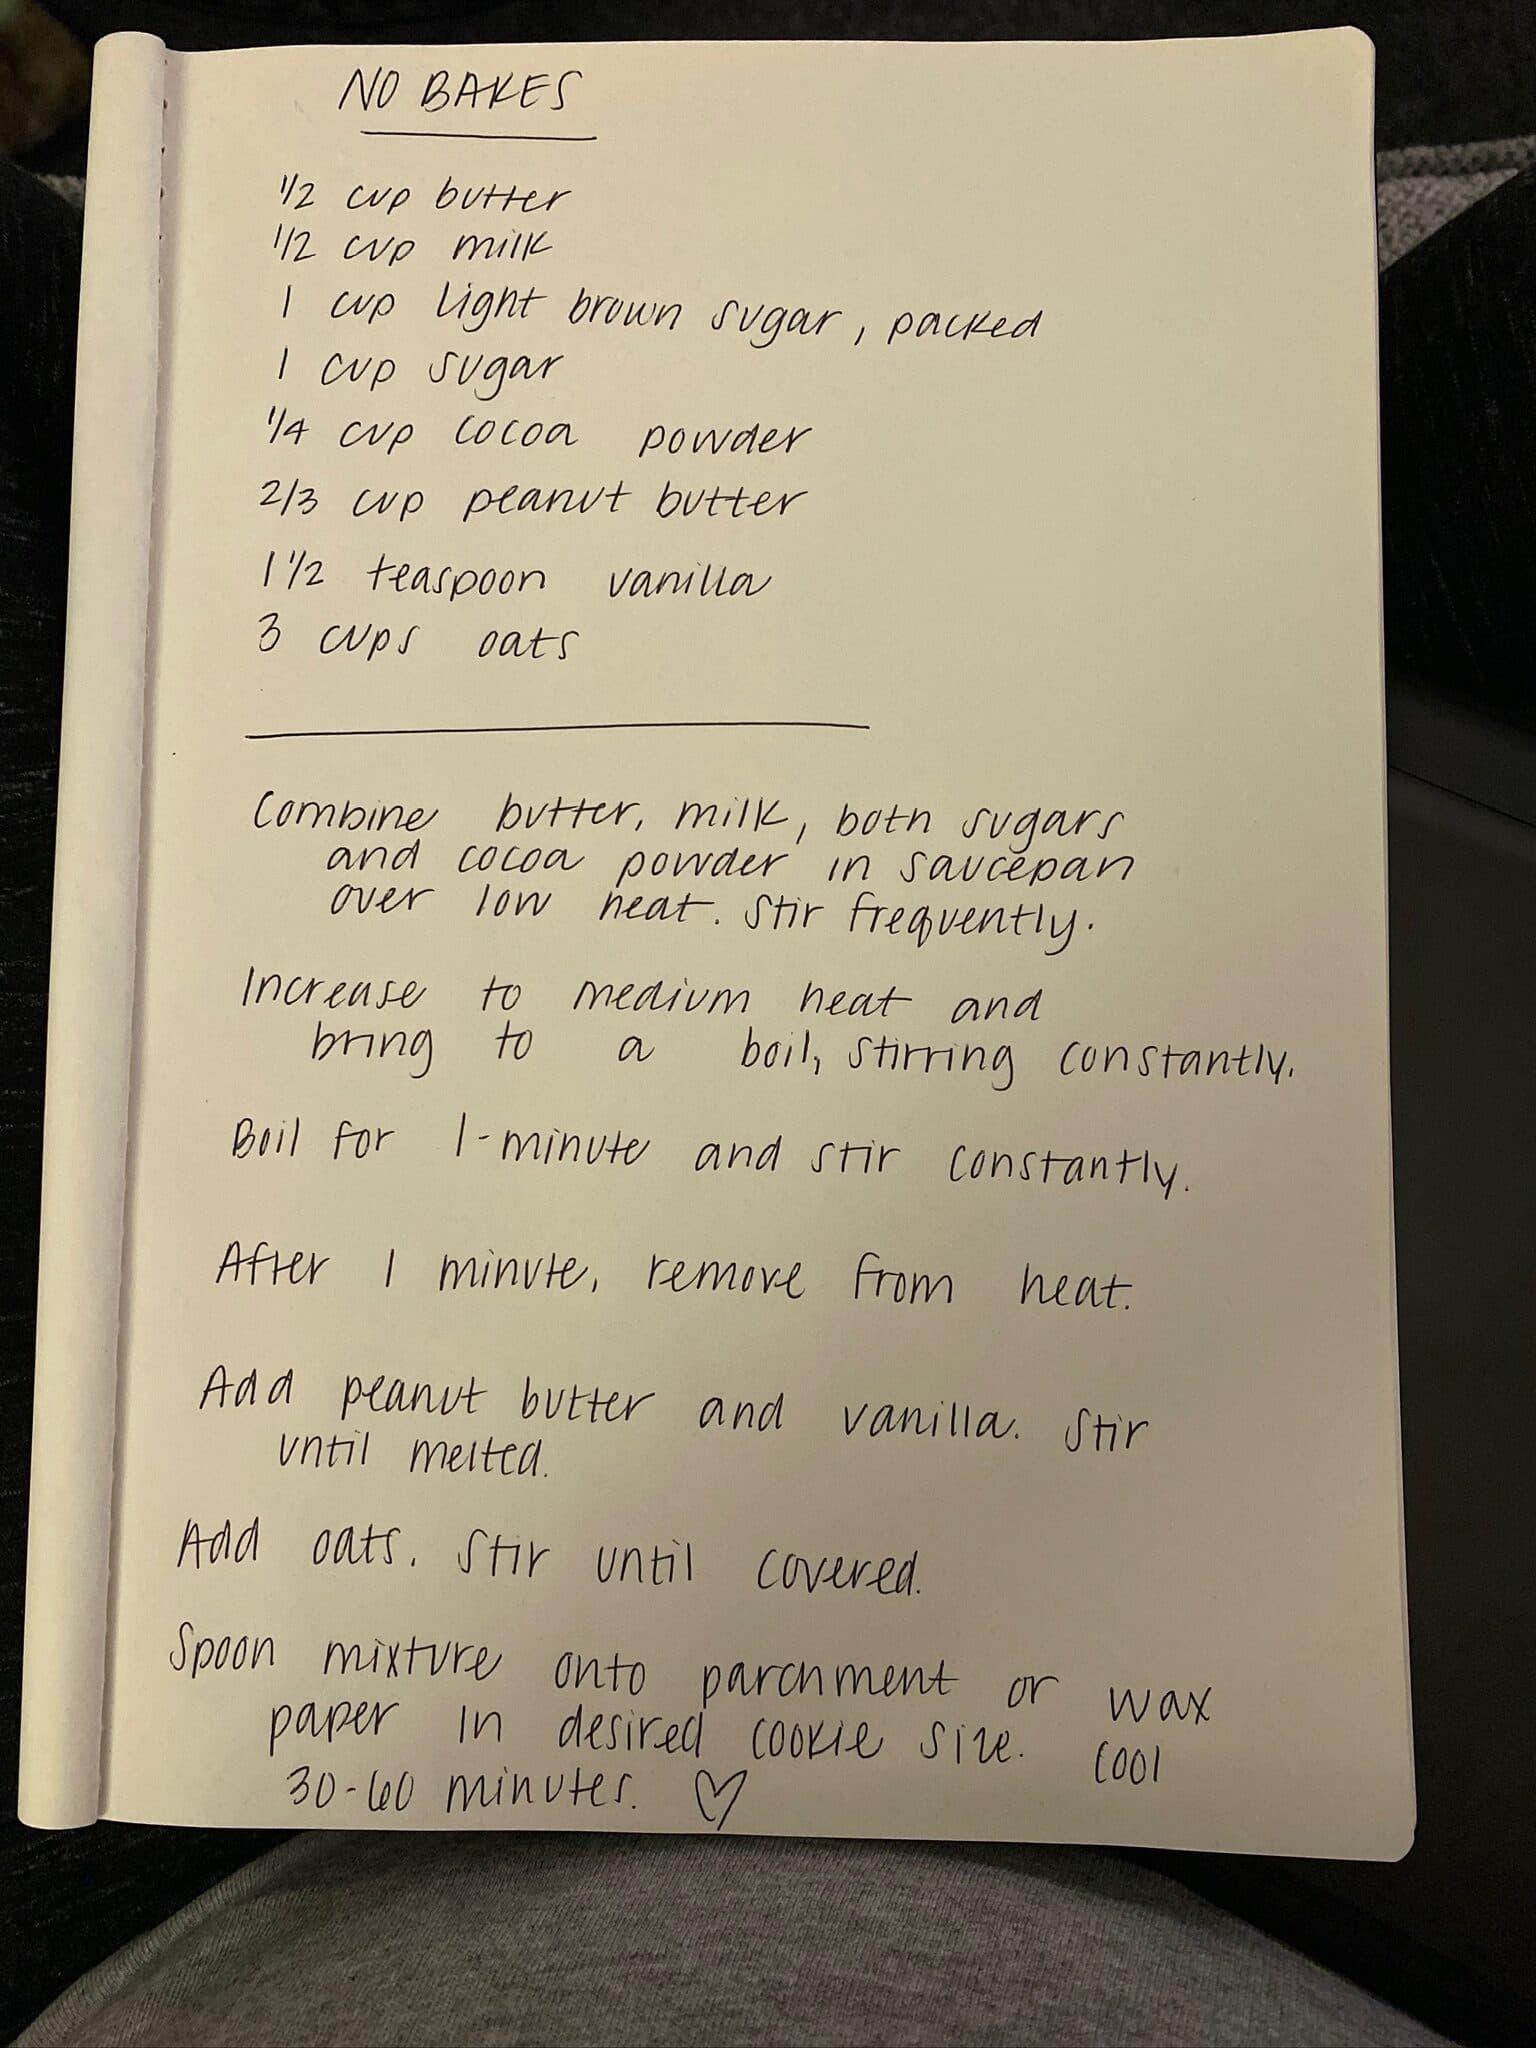 NO BAKES
1/2 cup butter
1/2 cup milk
1 cup light brown sugar, packed
1 cup sugar
1/4 cup cocoa powder
2/3 cup peanut butter
1 1/2 teaspoon vanilla
3 cups oats
Combine butter, milk, both sugars
and cocoa powder in saucepan
over low heat. Stir frequently.
Increase to medium heat and
bring to a boil, stirring constantly.
Boil for 1-minute and stir constantly.
After 1 minute, remove from heat.
Add peanut butter and vanilla. Stir
until melted.
Add oats. Stir until covered.
Spoon mixture onto parchment or wax
paper in desired cookie size. Cool
30-60 minutes. ♡